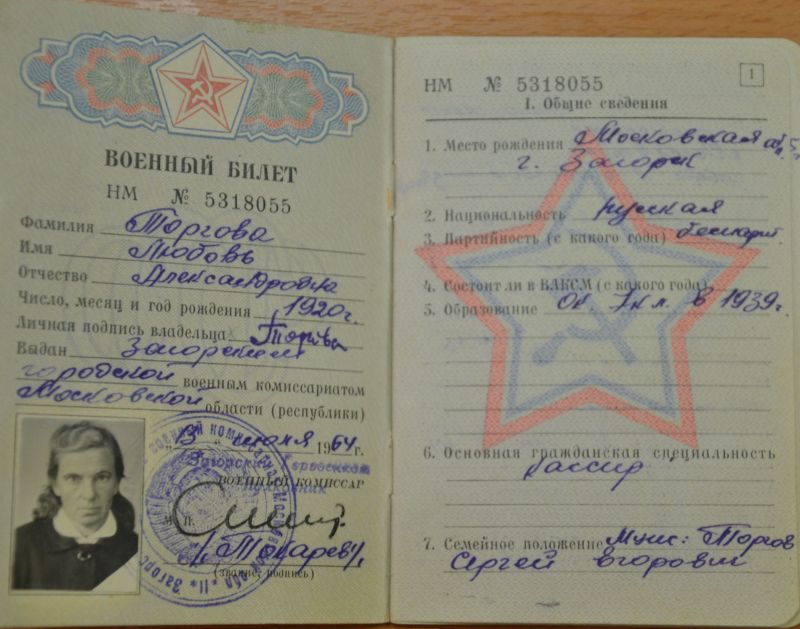 ВОЕННЫЙ БИЛЕТ
НМ № 5318055
Фамилия Торгова
Имя Любовь
Отчество Александровна
Число, месяц и год рождения 1920 г.
Личная подпись владельца
Выдан Загорским
городской военным комиссариатом
Московской области (республики)
"13" июня 1964 г.
Загорский горвоенком
ВОЕННЫЙ КОМИССАР
Полковник
М. П.
/Токарев/
(звание, подпись)
НМ № 5318055
1
I. Общие сведения
1. Место рождения Московская
г. Загорск
2. Национальность русская
3. Партийность (с какого года) беспарт.
4. Состоит ли в ВЛКСМ (с какого года)
5. Образование Ок. 7 кл. в 1939 г.
6. Основная гражданская специальность
кассир
7. Семейное положение Муж: Торгов
Сергей Егорович